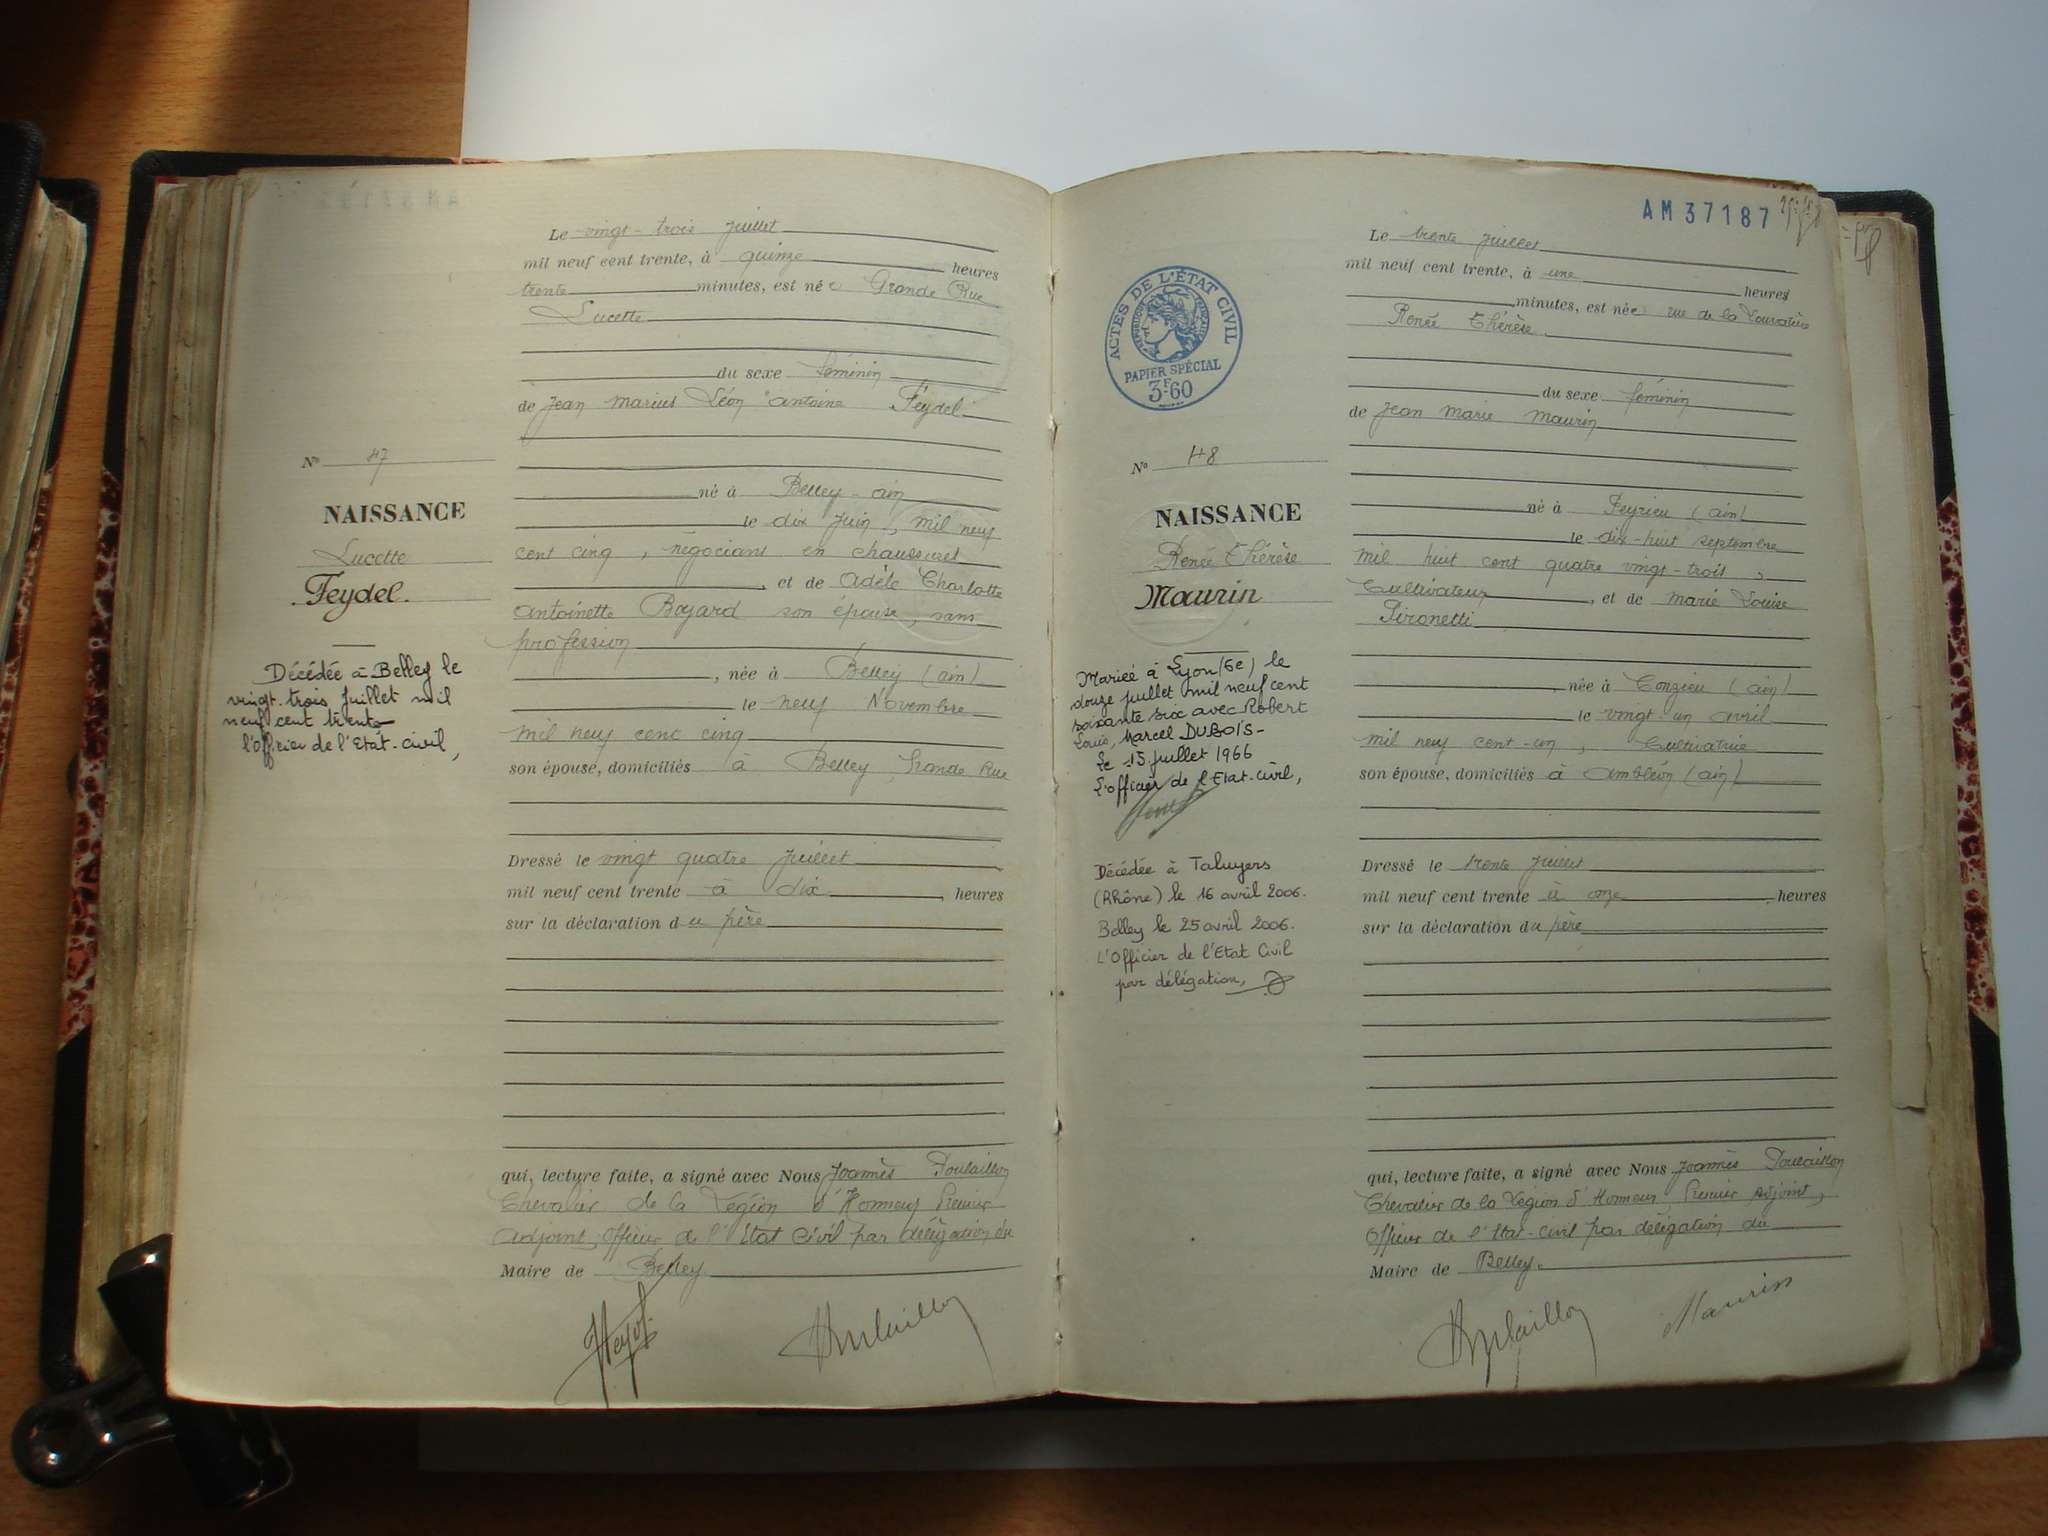 Le vingt-trois juillet
mil neuf cent trente, à quinze heures
trente minutes, est née Grande Rue
Lucette
du sexe féminin
de Jean Marius Léon Antoine Feydel
né à Belley-Ain
le dix juin, mil neuf
cent cinq, négociant en chaussures
, et de Adèle Charlotte
Antoinette Bogard son épouse, sans
profession
, née à Belley (Ain)
le neuf Novembre
mil neuf cent cinq
son épouse, domiciliés à Belley, Grande Rue
Dressé le vingt quatre juillet
mil neuf cent trente à dix, heures
sur la déclaration du père
qui, lecture faite, a signé avec Nous Joannès Poulaillon
Chevalier de la Légion d'Honneur Premier
Adjoint, Officier de l'Etat Civil par délégation du
Maire de Belley
No 47
NAISSANCE
Lucette
Feydel.
Décédée à Belley le
vingt-trois juillet mil
neuf cent trente
l'officier de l'Etat-civil,
AM 37187
Le trente juillet
mil neuf cent trente, à une heures
minutes, est née rue de la
Renée Thérèse
du sexe féminin
de Jean Marie Maurin
né à Peyrieu (Ain)
le dix-huit septembre
mil huit cent quatre vingt-trois,
Cultivateur, et de Marie Louise
Pironetti
, née à Conzieu (Ain)
le vingt-un avril
mil neuf cent-un, Cultivatrice
son épouse, domiciliés à Ambléon (Ain)
Dressé le trente juillet
mil neuf cent trente à onze, heures
sur la déclaration du père
qui, lecture faite, a signé avec Nous Joannès Poulaillon
Chevalier de la Légion d'Honneur Premier Adjoint,
Officier de l'Etat-civil par délégation du
Maire de Belley.
Maurin
ACTES DE L'ÉTAT CIVIL
RÉPUBLIQUE FRANÇAISE
PAPIER SPÉCIAL
3F60
No 48
NAISSANCE
Renée Thérèse
Maurin
Mariée à Lyon (6e) le
douze juillet mil neuf cent
soixante six avec Robert
Louis, Marcel DUBOIS-
Le 15 juillet 1966
L'officier de l'Etat-civil,
Décédée à Taluyers
(Rhône) le 16 avril 2006.
Belley le 25 avril 2006.
L'Officier de l'Etat Civil
par délégation,